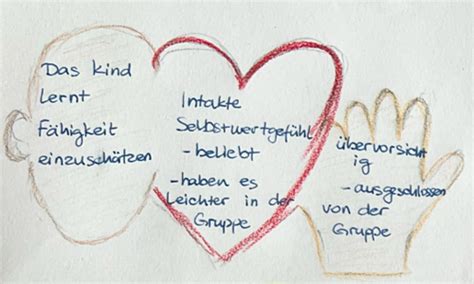 Das kind
lernt
Fähigkeit
einzuschätzen
Intakte
Selbstwertgefühl
- beliebt
- haben es
Leichter in der
Gruppe
übervorsicht
ig
- ausgeschlossen
von der
Gruppe